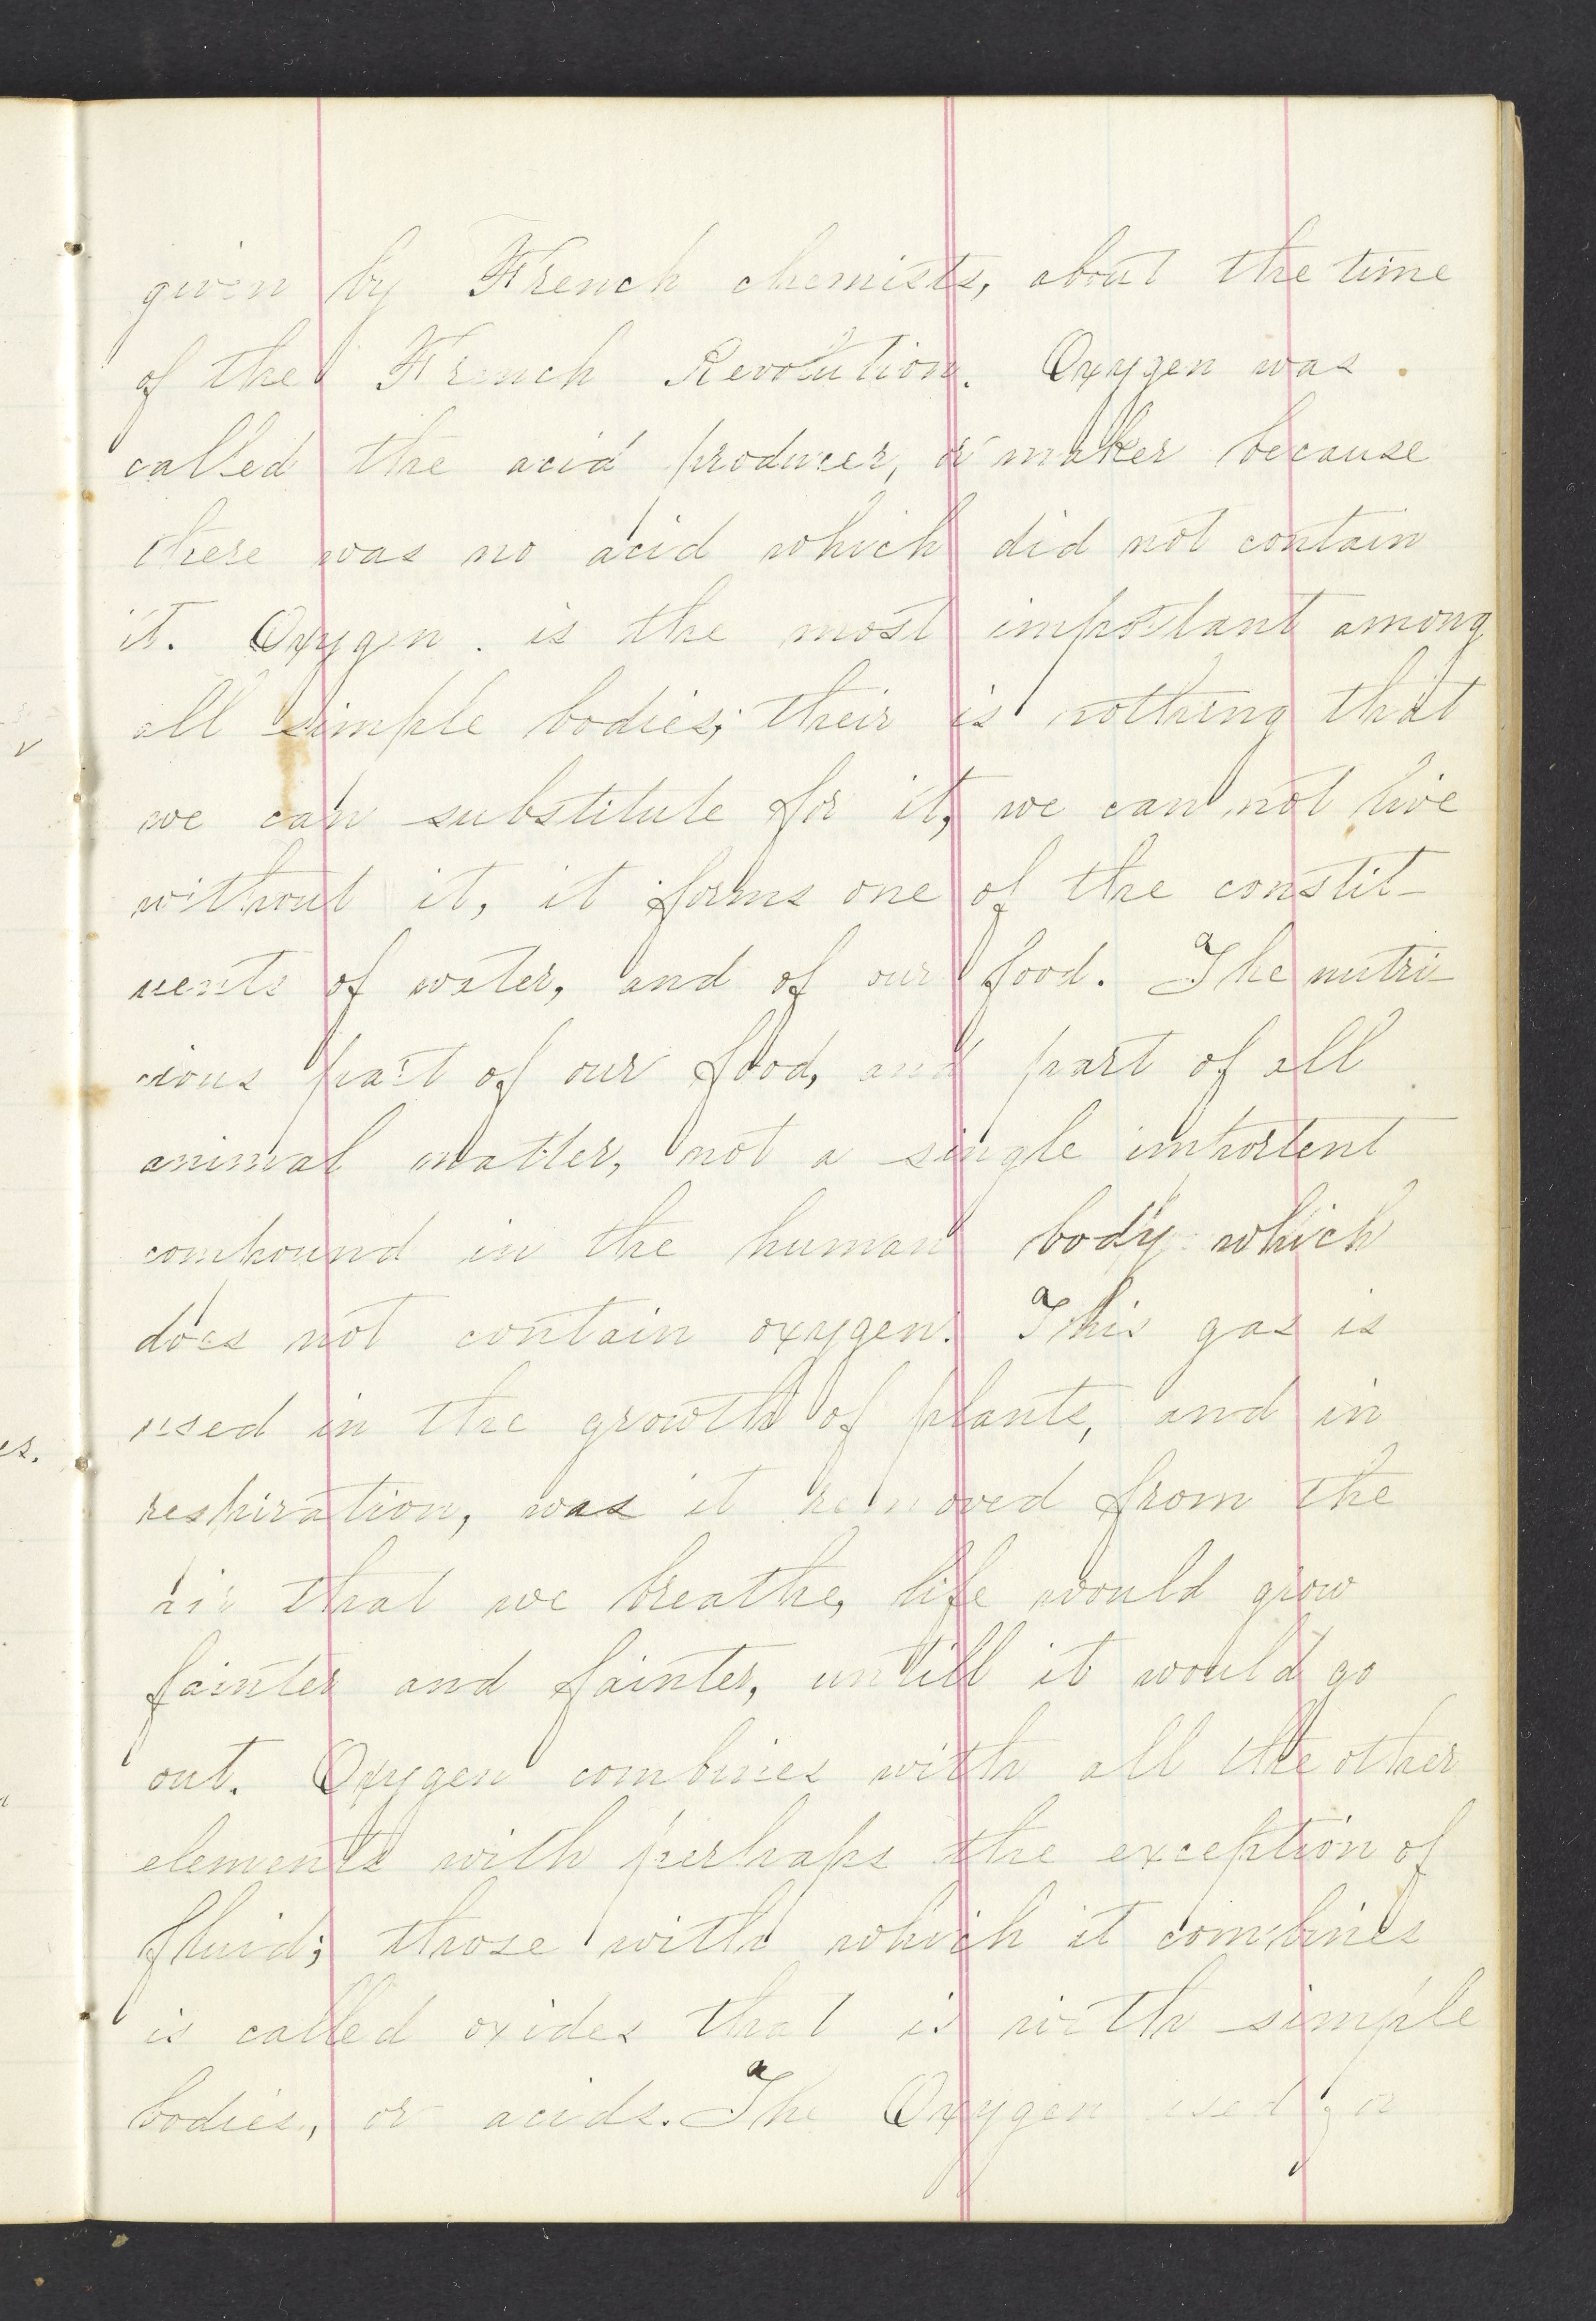 given by French chemists, about the time
of the French Revolution. Oxygen was
called the acid producer, or maker because
there was no acid which did not contain
it. Oxygen. is the most important among
all simple bodies; their is nothing that
we can substitute for it, we can not live
without it, it forms one of the constit-
uents of water, and of our food. The nutri-
cious part of our food, and part of all
animal matter, not a single importent
compound in the human body which
does not contain oxygen. This gas is
used in the growth of plants, and in
respiration, was it removed from the
air that we breathe, life would grow
fainter and fainter, untill it would go
out. Oxygen combines with all the other
elements with perhaps the exception of
fluid; those with which it combines
is called oxides that is with simple
bodies, or acids. The Oxygen used for